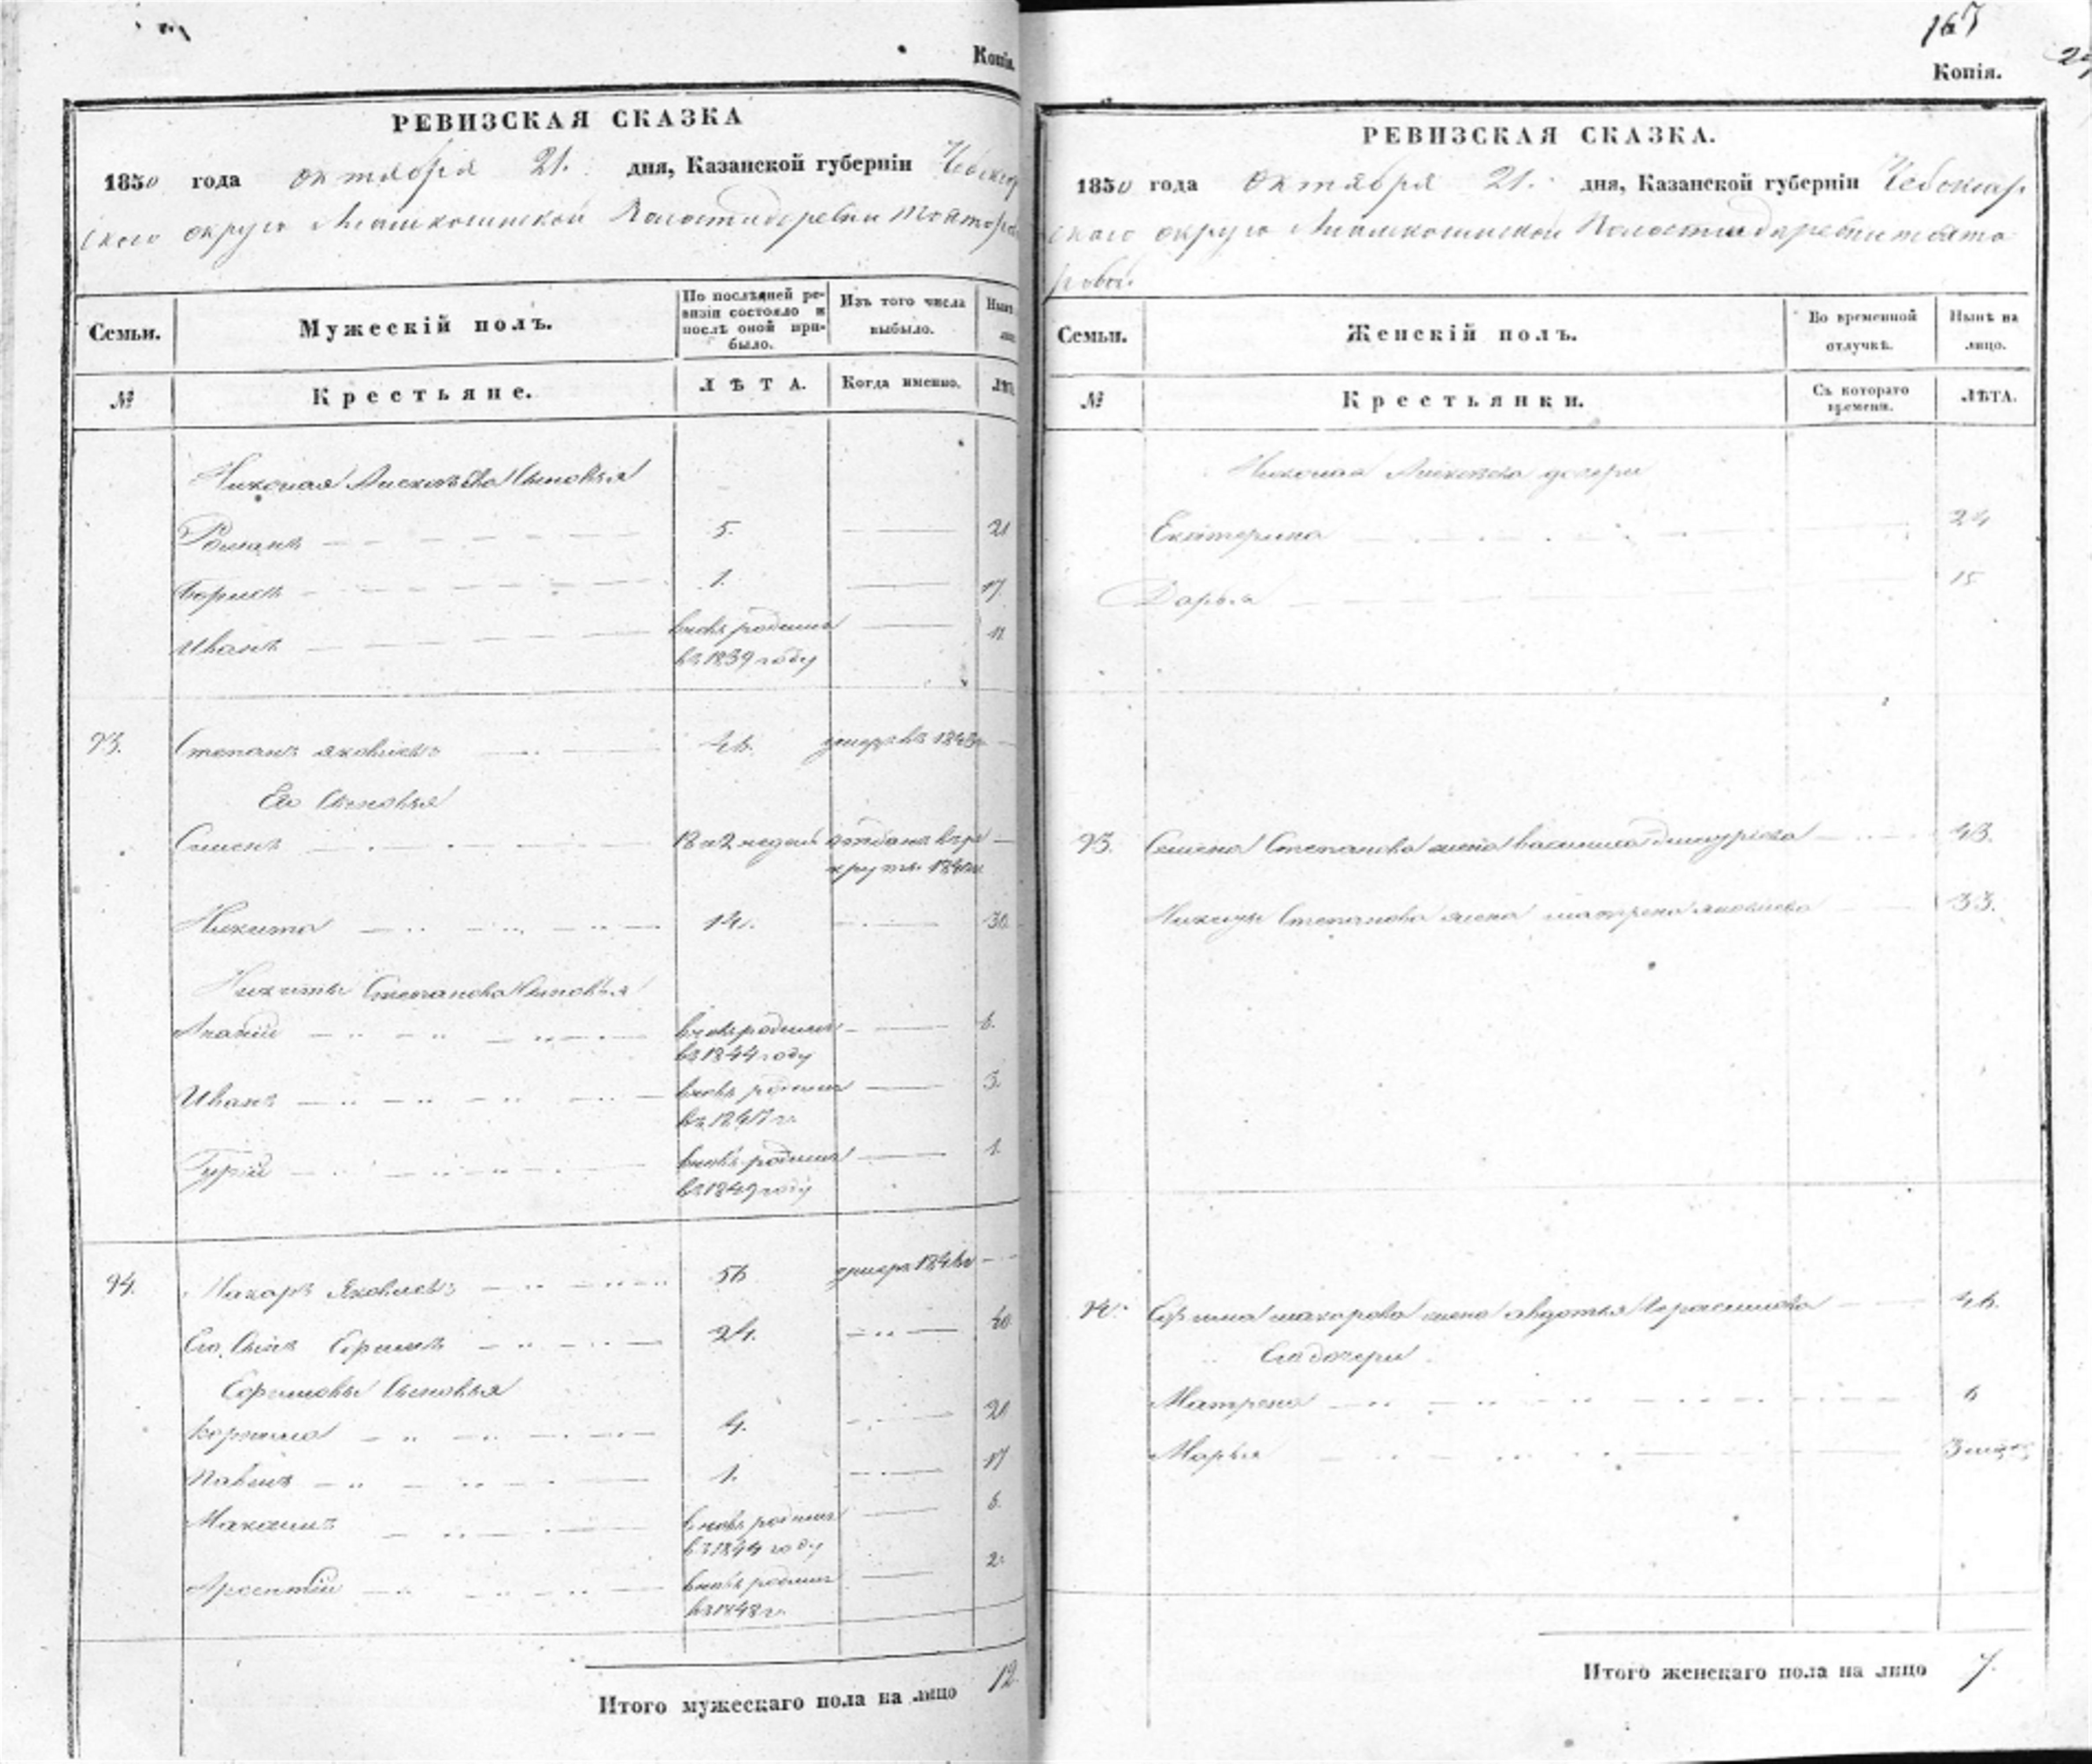 Копія.
РЕВИЗСКАЯ СКАЗКА
1850 года октября 21. дня, Казанской губерніи Чебоксар
скаго округа волости деревни
Семьи.
Мужескій полъ.
По послѣдней ре-
визіи состояло и
послѣ оной при-
было.
Изъ того числа
выбыло.
№
Крестьяне.
ЛѢТА.
Когда именно.
Николая Сыновья
Романъ 5. 21
Борисъ 1. 17
Иванъ вновь рожденъ 11
въ 1839 году
93. Степанъ Яковлевъ 46. умеръ въ 1843
Его Сыновья
Семенъ 18 и 2 недѣли отданъ въ ре
круты 1840
Никита 14. 30.
Никиты Степанова Сыновья
вновь рожденъ 6.
въ 1844 году
Иванъ вновь рожденъ 3.
въ 1847 г.
Гурій вновь рожденъ 1.
въ 1849 году
94. Макаръ Яковлевъ 56 умеръ 1846
Его Сынъ Ефимъ 24. 40
Ефимовы Сыновья
4. 21
Павелъ 1. 17
Максимъ вновь рожденъ 6.
въ 1844 году
Арсентій вновь рожденъ 2.
въ 1848 г.
Итого мужескаго пола на лицо 12
167
Копія.
РЕВИЗСКАЯ СКАЗКА.
1850 года Октября 21. дня, Казанской губерніи Чебоксар
скаго округа волости деревни
ровой.
Семьи.
Женскій полъ.
Во временной
отлучкѣ.
Нынѣ на
лицо.
№
Крестьянки.
Съ котораго
времени.
ЛѢТА.
Николая дочери
Екатерина 24
Дарья 15
93. Семена Степанова жена Василиса 43.
Никиты Степанова жена Матрена Яковлева 33.
94. Ефима Макарова жена Авдотья Герасимова 46.
Его дочери
Матрена 6
Марья 3
Итого женскаго пола на лицо 7.